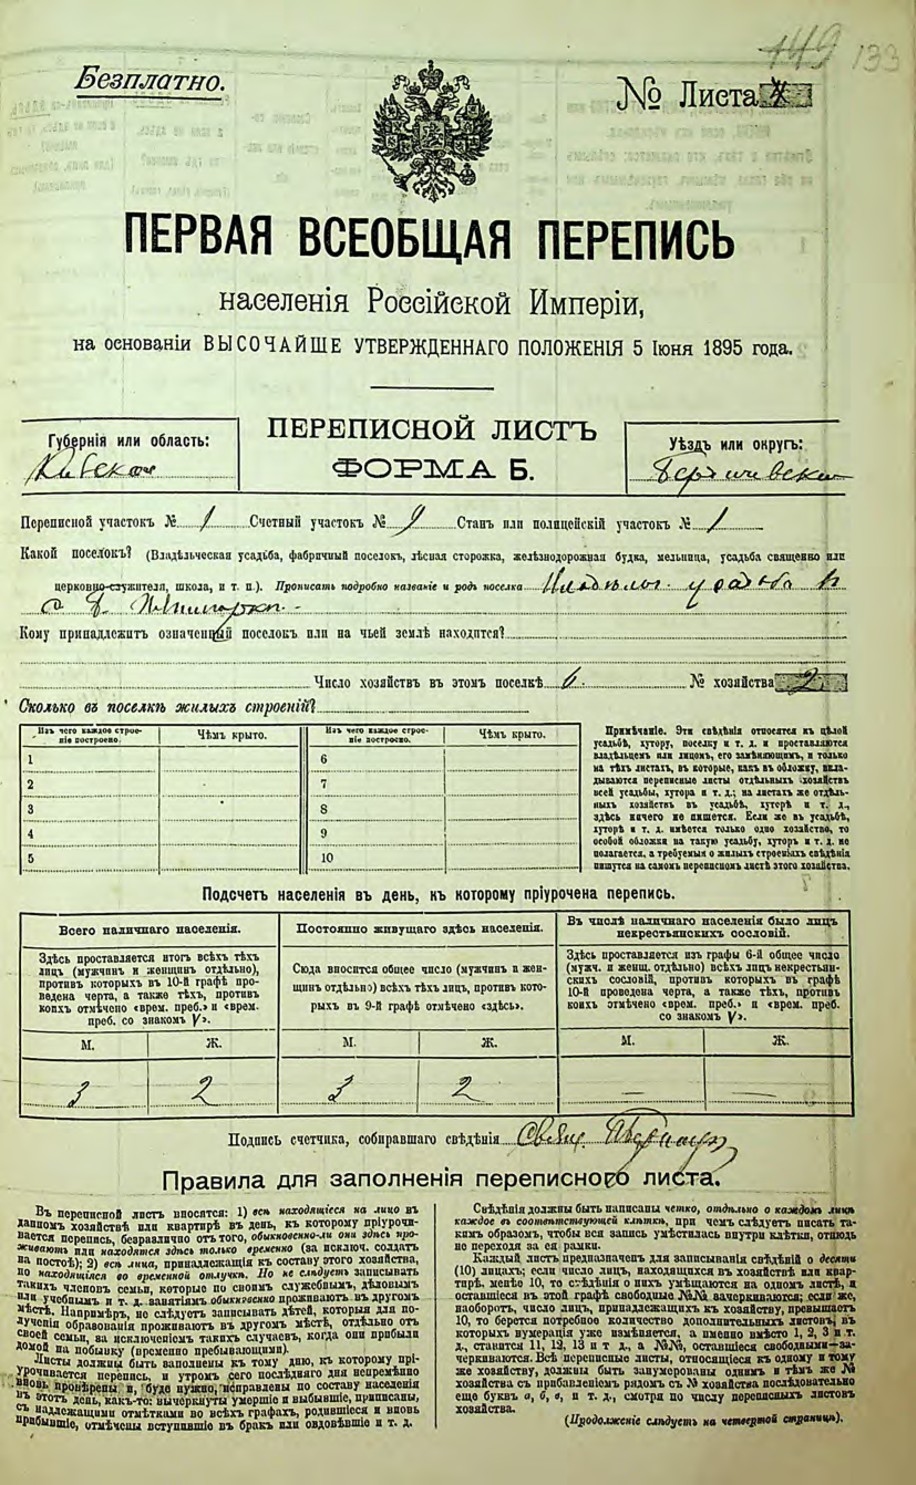 149 133
Безплатно.
№ Листа
ПЕРВАЯ ВСЕОБЩАЯ ПЕРЕПИСЬ
населенія Россійской Имперіи,
на основаніи ВЫСОЧАЙШЕ УТВЕРЖДЕННАГО ПОЛОЖЕНІЯ 5 Іюня 1895 года.
Губернія или область:
Кіевская
ПЕРЕПИСНОЙ ЛИСТЪ
ФОРМА Б.
Уѣздъ или округъ:
Бердичевскій
Переписной участокъ № 1 Счетный участокъ № 9 Станъ или полицейскій участокъ № 1
Какой поселокъ? (Владѣльческая усадьба, фабричный поселокъ, лѣсная сторожка, желѣзнодорожная будка, мельница, усадьба священно или
церковно-служителя, школа, и т. п.). Прописать подробно названіе и родъ поселка усадьба в
Кому принадлежитъ означенный поселокъ или на чьей землѣ находится?
Число хозяйствъ въ этомъ поселкѣ 6. № хозяйства 2.
Сколько въ поселкѣ жилыхъ строеній?
Изъ чего каждое строеніе построено. Чѣмъ крыто. Изъ чего каждое строеніе построено. Чѣмъ крыто.
1 6
2 7
3 8
4 9
5 10
Примѣчаніе. Эти свѣдѣнія относятся къ цѣлой
усадьбѣ, хутору, поселку и т. д. и проставляются
владѣльцемъ или лицомъ, его замѣняющимъ, и только
на тѣхъ листахъ, въ которые, какъ въ обложку, вкла-
дываются переписные листы отдѣльныхъ хозяйствъ
всей усадьбы, хутора и т. д.; на листахъ же отдѣль-
ныхъ хозяйствъ въ усадьбѣ, хуторѣ и т. д.,
здѣсь ничего не пишется. Если же въ усадьбѣ,
хуторѣ и т. д. имѣется только одно хозяйство, то
особой обложки на такую усадьбу, хуторъ и т. д. не
полагается, а требуемыя о жилыхъ строеніяхъ свѣдѣнія
пишутся на самомъ переписномъ листѣ этого хозяйства.
Подсчетъ населенія въ день, къ которому пріурочена перепись.
Всего наличнаго населенія.
Здѣсь проставляется итогъ всѣхъ тѣхъ
лицъ (мужчинъ и женщинъ отдѣльно),
противъ которыхъ въ 10-й графѣ про-
ведена черта, а также тѣхъ, противъ
коихъ отмѣчено «врем. преб.» и «врем.
преб. со знакомъ V».
М. Ж.
3 2
Постоянно живущаго здѣсь населенія.
Сюда вносится общее число (мужчинъ и жен-
щинъ отдѣльно) всѣхъ тѣхъ лицъ, противъ кото-
рыхъ въ 9-й графѣ отмѣчено «здѣсь».
М. Ж.
3 2
Въ числѣ наличнаго населенія было лицъ
некрестьянскихъ сословій.
Здѣсь проставляется изъ графы 6-й общее число
(мужч. и женщ. отдѣльно) всѣхъ лицъ некрестьян-
скихъ сословій, противъ которыхъ въ графѣ
10-й проведена черта, а также тѣхъ, противъ
коихъ отмѣчено «врем. преб.» и «врем. преб.
со знакомъ V».
М. Ж.
— —
Подпись счетчика, собиравшаго свѣдѣнія
Правила для заполненія переписного листа.
Въ переписной листъ вносятся: 1) всѣ находящіеся на лицо въ
данномъ хозяйствѣ или квартирѣ въ день, къ которому пріурочи-
вается перепись, безразлично отъ того, обыкновенно-ли они здѣсь про-
живаютъ или находятся здѣсь только временно (за исключ. солдатъ
на постоѣ); 2) всѣ лица, принадлежащія къ составу этого хозяйства,
но находящіяся во временной отлучкѣ. Но не слѣдуетъ записывать
такихъ членовъ семьи, которые по своимъ служебнымъ, дѣловымъ
или учебнымъ и т. д. занятіямъ обыкновенно проживаютъ въ другомъ
мѣстѣ. Напримѣръ, не слѣдуетъ записывать дѣтей, которыя для по-
лученія образованія проживаютъ въ другомъ мѣстѣ, отдѣльно отъ
своей семьи, за исключеніемъ такихъ случаевъ, когда они прибыли
домой на побывку (временно пребывающими).
Листы должны быть заполнены къ тому дню, къ которому прі-
урочивается перепись, и утромъ сего послѣдняго дня непремѣнно
вновь провѣрены и, буде нужно, исправлены по составу населенія
въ этотъ день, какъ-то: вычеркнуты умершіе и выбывшіе, приписаны,
съ надлежащими отмѣтками во всѣхъ графахъ, родившіеся и вновь
прибывшіе, отмѣчены вступившіе въ бракъ или овдовѣвшіе и т. д.
Свѣдѣнія должны быть написаны четко, отдѣльно о каждомъ лицѣ
каждое въ соотвѣтствующей клѣткѣ, при чемъ слѣдуетъ писать та-
кимъ образомъ, чтобы вся запись умѣстилась внутри клѣтки, отнюдь
не переходя за ея рамки.
Каждый листъ предназначенъ для записыванія свѣдѣній о десяти
(10) лицахъ; если число лицъ, находящихся въ хозяйствѣ или квар-
тирѣ, менѣе 10, то свѣдѣнія о нихъ умѣщаются на одномъ листѣ, а
оставшіеся въ этой графѣ свободные №№ вачеркиваются; если же,
наоборотъ, число лицъ, принадлежащихъ къ хозяйству, превышаетъ
10, то берется потребное количество дополнительныхъ листовъ, въ
которыхъ нумерація уже измѣняется, а именно вмѣсто 1, 2, 3 и т.
д., ставится 11, 12, 13 и т. д., а №№, оставшіеся свободными—за-
черкиваются. Всѣ переписные листы, относящіеся къ одному и тому
же хозяйству, должны быть занумерованы однимъ и тѣмъ же №
хозяйства съ прибавленіемъ рядомъ съ № хозяйства послѣдовательно
еще буквъ а, б, в, и т. д., смотря по числу переписныхъ листовъ
хозяйства.
(Продолженіе слѣдуетъ на четвертой страницѣ).